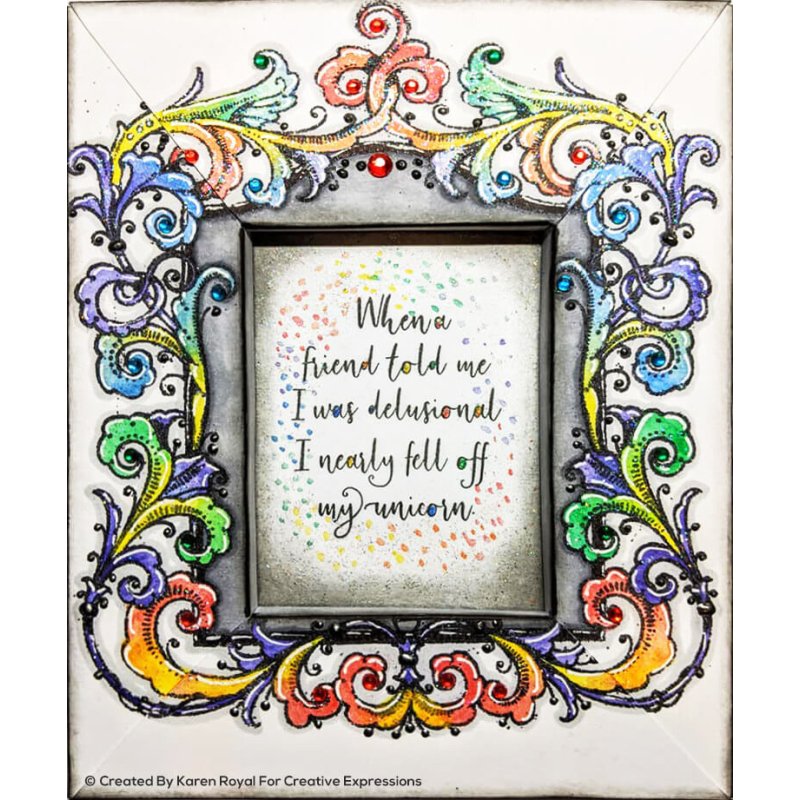 When a
friend told me
I was delusional
I nearly fell off
my unicorn.
© Created By Karen Royal For Creative Expressions